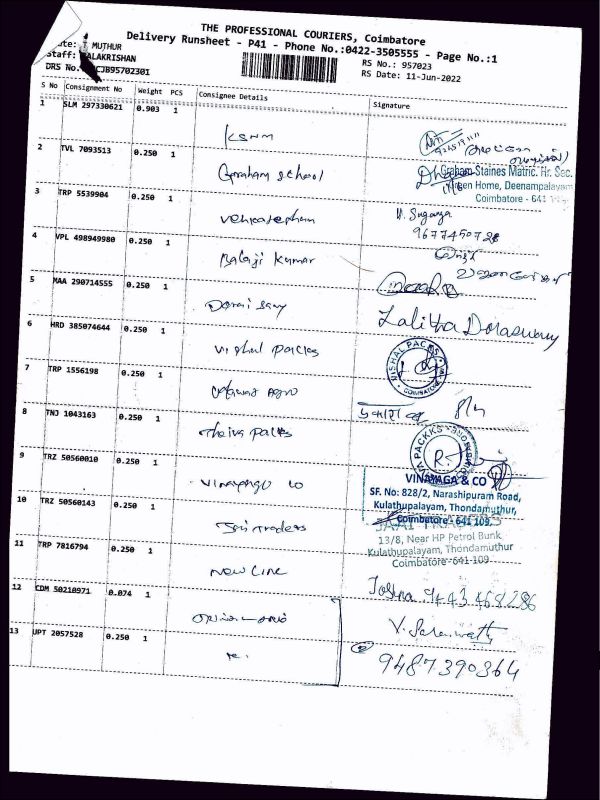 THE PROFESSIONAL COURIERS, Coimbatore
Delivery Runsheet - P41 - Phone No.:0422-3505555 - Page No.:1
MUTHUR
Staff: BALAKRISHAN
DRS No. CJB95702301
RS No.: 957023
RS Date: 11-Jun-2022
S No Consignment No Weight PCS Consignee Details Signature
1 SLM 297330621 0.903 1
2 TVL 7093513 0.250 1 Graham school
Graham Staines Matric. Hr. Sec.
Green Home, Deenampalayam
Coimbatore - 641
3 TRP 5539904 0.250 1
9677450728
4 VPL 498949980 0.250 1 Balaji Kumar
5 MAA 290714555 0.250 1 Dorai samy Lalitha Doraswamy
6 HRD 385074644 0.250 1 Vishal packs
VISHAL PACKS
COIMBATORE
7 TRP 1556198 0.250 1 Agro
8 TNJ 1043163 0.250 1 Theiva packs
9 TRZ 50560010 0.250 1 Vinayaga co
VINAYAGA & CO
SF. No: 828/2, Narashipuram Road,
Kulathupalayam, Thondamuthur,
Coimbatore - 641 109.
10 TRZ 50560143 0.250 1 Traders
13/8, Near HP Petrol Bunk
Kulathupalayam, Thondamuthur
Coimbatore-641-109
11 TRP 7816794 0.250 1 New Line
12 CDM 50210971 0.074 1
V. Saraswathi
13 UPT 2057528 0.250 1
9487390364